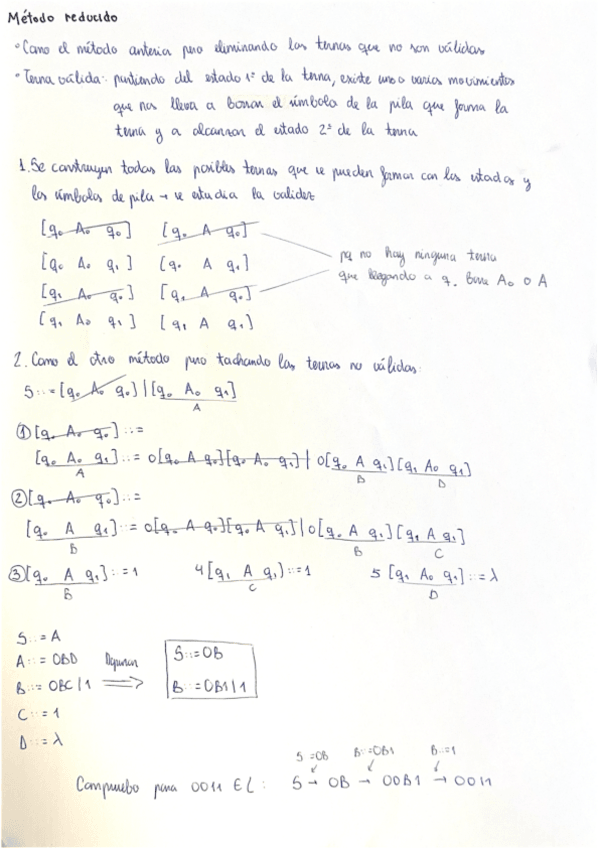 Método reducido
• Como el método anterior pero eliminando las ternas que no son válidas
• Terna válida: partiendo del estado 1º de la terna, existe uno o varios movimientos
que nos lleva a borrar el símbolo de la pila que forma la
terna y a alcanzar el estado 2º de la terna
1. Se construyen todas las posibles ternas que se pueden formar con los estados y
los símbolos de pila → se estudia la validez
[q₀ A₀ q₀] [q₀ A q₀]
[q₀ A₀ q₁] [q₀ A q₁]
[q₁ A₀ q₀] [q₁ A q₀]
[q₁ A₀ q₁] [q₁ A q₁]
pq no hay ninguna terna
que llegando a q₀ borre A₀ o A
2. Como el otro método pero tachando las ternas no válidas:
S::=[q₀ A₀ q₀]|[q₀ A₀ q₁]
A
① [q₀ A₀ q₀]::=
[q₀ A₀ q₁]::= 0[q₀ A q₀][q₀ A₀ q₁] | 0[q₀ A q₁][q₁ A₀ q₁]
A B D
② [q₀ A q₀]::=
[q₀ A q₁]::= 0[q₀ A q₀][q₀ A q₁] | 0[q₀ A q₁][q₁ A q₁]
B B C
③ [q₀ A q₁]::=1 4 [q₁ A q₁]::=1 5 [q₁ A₀ q₁]::=λ
B C D
S::=A
A::= 0BD Depuran
B::= 0BC|1 ⟹
C::=1
D::=λ
S::=0B
B::=0B1|1
S::=0B B::=0B1 B::=1
Compruebo para 0011 ∈ L: S → 0B → 00B1 → 0011